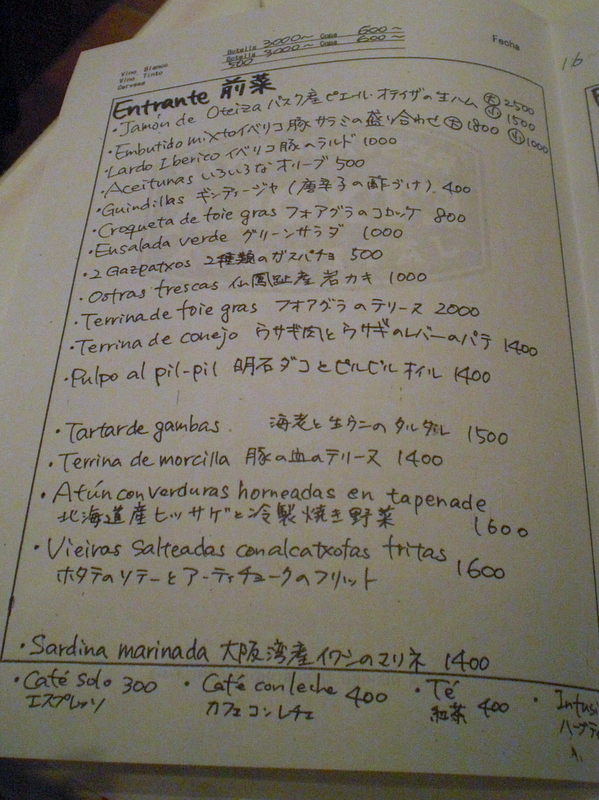 Vino Blanco Botella 3000~ Copa 600~
Vino Tinto Botella 3000~ Copa 600~
Cerveza 500
Fecha
16
Entrante 前菜
・Jamón de Oteiza バスク産ピエール・オテイザの生ハム 大 2500
小 1500
・Embutido mixto イベリコ豚サラミの盛り合わせ 大 1800 小 1000
・Lardo Iberico イベリコ豚のラルド 1000
・Aceitunas いろいろなオリーブ 500
・Guindillas ギンディージャ (唐辛子の酢づけ) 400
・Croqueta de foie gras フォアグラのコロッケ 800
・Ensalada verde グリーンサラダ 1000
・2 Gazpatxos 2種類のガスパチョ 500
・Ostras frescas 仏国産岩カキ 1000
・Terrina de foie gras フォアグラのテリーヌ 2000
・Terrina de conejo ウサギ肉とウサギのレバーのパテ 1400
・Pulpo al pil-pil 明石ダコとピルピルオイル 1400
・Tartar de gambas 海老と生ウニのタルタル 1500
・Terrina de morcilla 豚の血のテリーヌ 1400
・Atún con verduras horneadas en tapenade
北海道産ヒッサゲと冷製焼き野菜 1600
・Vieiras salteadas con alcatxofas fritas
ホタテのソテーとアーティチョークのフリット 1600
・Sardina marinada 大阪湾産イワシのマリネ 1400
・Café solo 300 ・Café con leche 400 ・Té 400 ・Infusi
エスプレッソ カフェコンレチェ 紅茶 ハーブティ